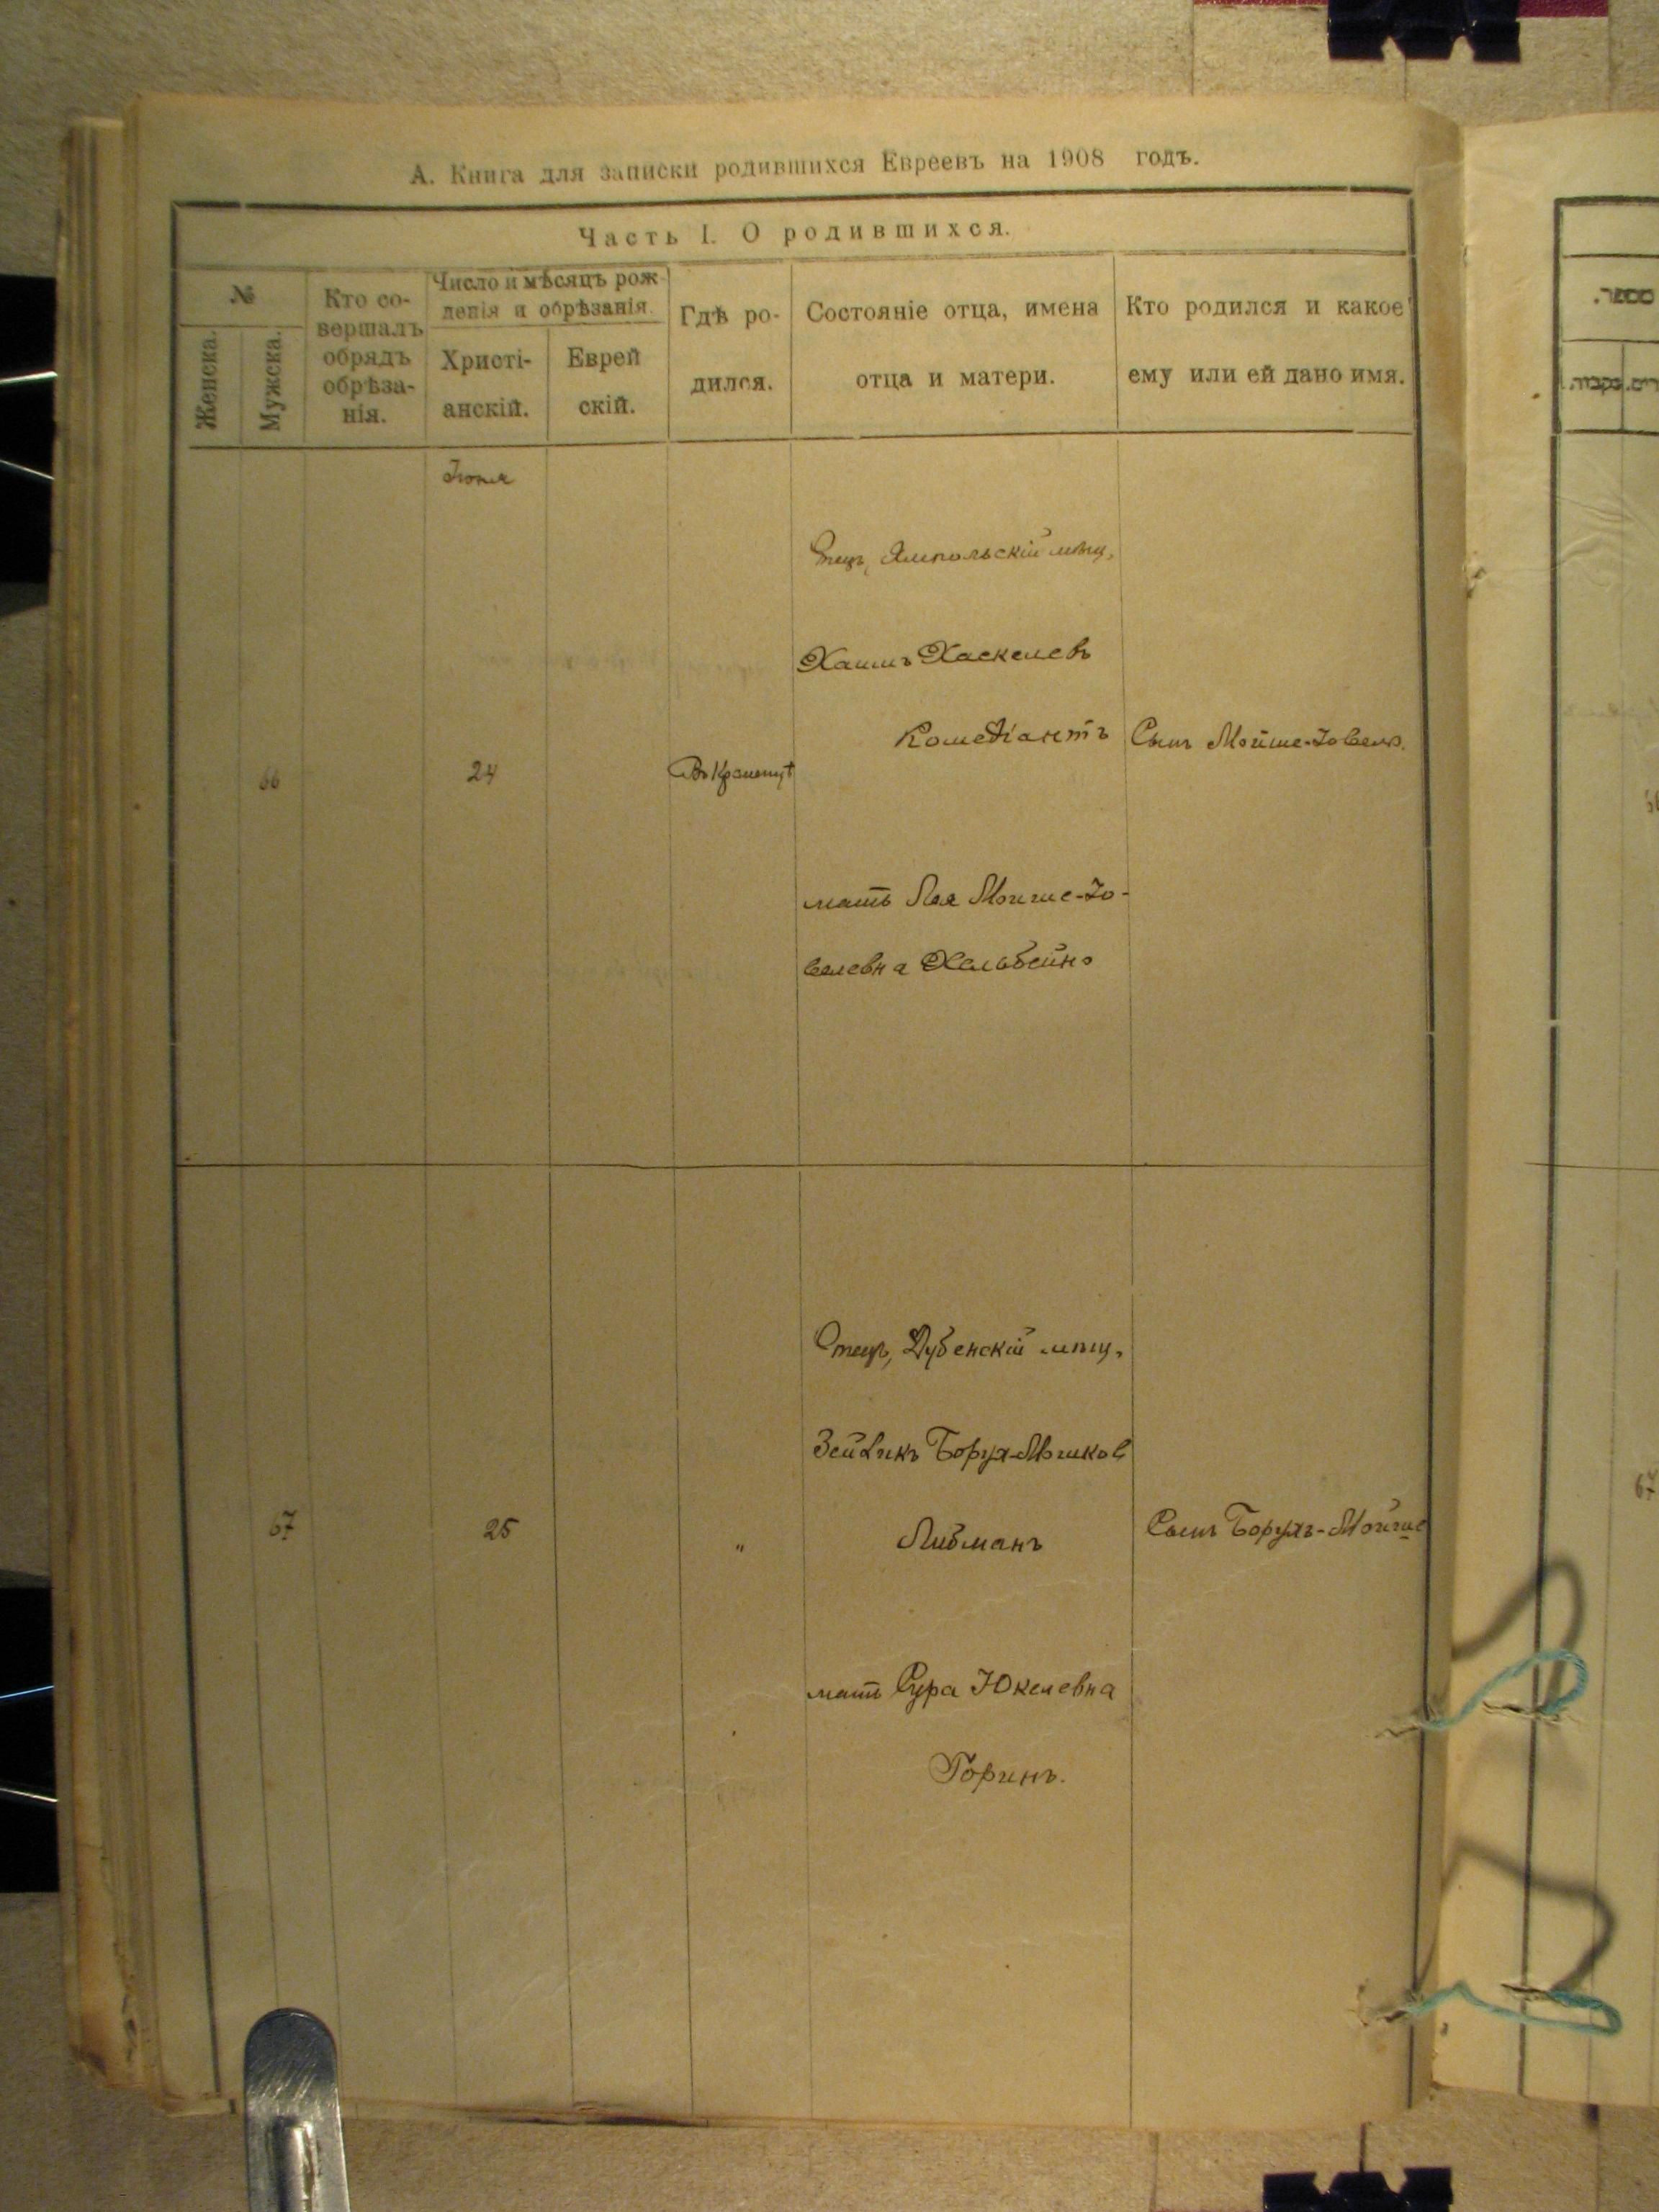 А. Книга для записки родившихся Евреевъ на 1908 годъ.
Часть I. О родившихся.
№
Женска.
Мужска.
Кто со-
вершалъ
обрядъ
обрѣза-
нія.
Число и мѣсяцъ рож-
денія и обрѣзанія.
Христі-
анскій.
Еврей
скій.
Гдѣ ро-
дился.
Состояніе отца, имена
отца и матери.
Кто родился и какое
ему или ей дано имя.
66
24
Отецъ, Ямпольскій мѣщ.
Хаимъ Хаскелевъ
Комедіантъ
мать Лея Мойше-Іо-
велевна
Сынъ Мойше-Іовель.
67
25
"
Отецъ, Дубенскій мѣщ.
Зейликъ Борух-Мошков
Либманъ
мать Сура Юкелевна
Горинъ.
Сынъ Борухъ-Мойше